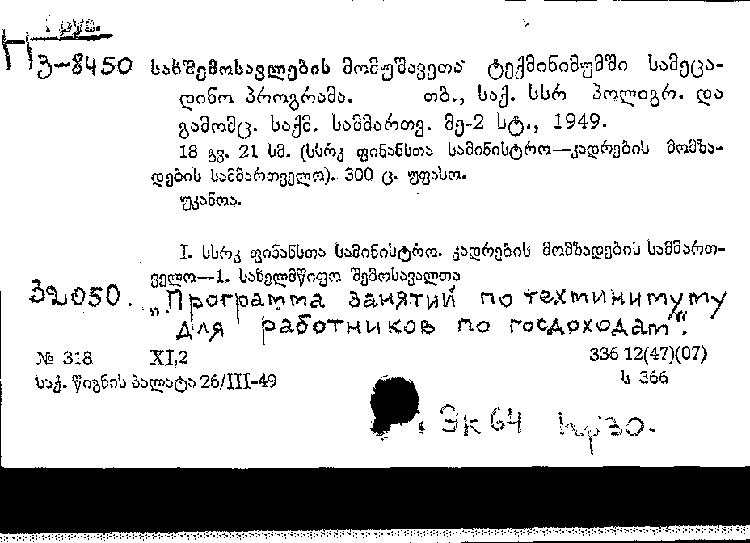 1 рус.
Н
3-8450 სახშემოსავლების მომუშავეთა ტექმინიმუმში სამეცა-
დინო პროგრამა. თბ., საქ. სსრ პოლიგრ. და
გამომც. საქმ. სამმართვ. მე-2 სტ., 1949.
18 გვ. 21 სმ. (სსრკ ფინანსთა სამინისტრო—კადრების მომზა-
დების სამმართველო). 300 ც. უფასო.
უკანოა.
I. სსრკ ფინანსთა სამინისტრო. კადრების მომზადების სამმართ-
ველო—1. სახელმწიფო შემოსავალთა
32050. „Программа занятий по техминимуму
для работников по госдоходам“.
№ 318 XI,2 336 12(47)(07)
საქ. წიგნის პალატა 26/III-49 ს 366
Эк 64 Нр30.